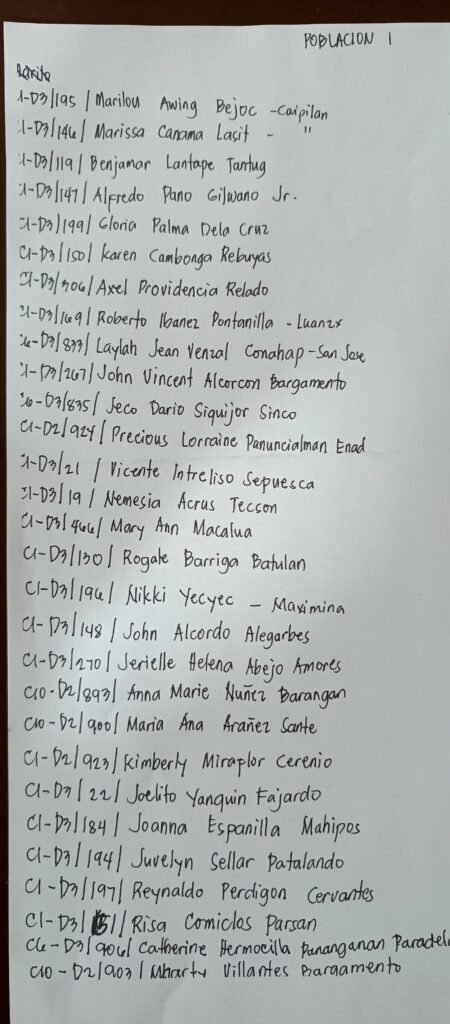 POBLACION 1
1-D3/195/ Marilou Awing Bejoc -Caipilan
1-D3/146/ Marissa Canama Lasit - "
1-D3/119/ Benjamar Lantape Tantug
1-D3/147/ Alfredo Pano Gilwano Jr.
C1-D3/199/ Gloria Palma Dela Cruz
C1-D3/150/ Karen Cambonga Rebuyas
C1-D3/306/ Axel Providencia Relado
1-D3/169/ Roberto Ibanez Pontanilla - Luanzx
C6-D3/833/ Laylah Jean Venzal Conahap -San Jose
1-D3/267/ John Vincent Alcorcon Bargamento
C6-D3/835/ Jeco Dario Siquijor Sinco
C1-D2/924/ Precious Lorraine Panuncialman Enad
1-D3/21 / Vicente Intreliso Sepuesca
C1-D3/19 / Nemesia Acrus Tecson
C1-D3/466/ Mary Ann Macalua
C1-D3/130/ Rogate Barriga Batulan
C1-D3/196/ Nikki Yecyec - Maximina
C1-D3/148/ John Alcordo Alegarbes
C1-D3/270/ Jerielle Helena Abejo Amores
C10-D2/893/ Anna Marie Nuñez Barangan
C10-D2/900/ Maria Ana Arañez Sante
C1-D2/923/ Kimberly Miraplor Cerenio
C1-D3/22/ Joelito Yanquin Fajardo
C1-D3/184/ Joanna Espanilla Mahipos
C1-D3/194/ Juvelyn Sellar Patalando
C1-D3/197/ Reynaldo Perdigon Cervantes
C1-D3/ / Risa Comiclos Parsan
C6-D3/906/ Catherine Hermocilla Pananganan Paradela
C10-D2/903/ Mharty Villantes Bargamento